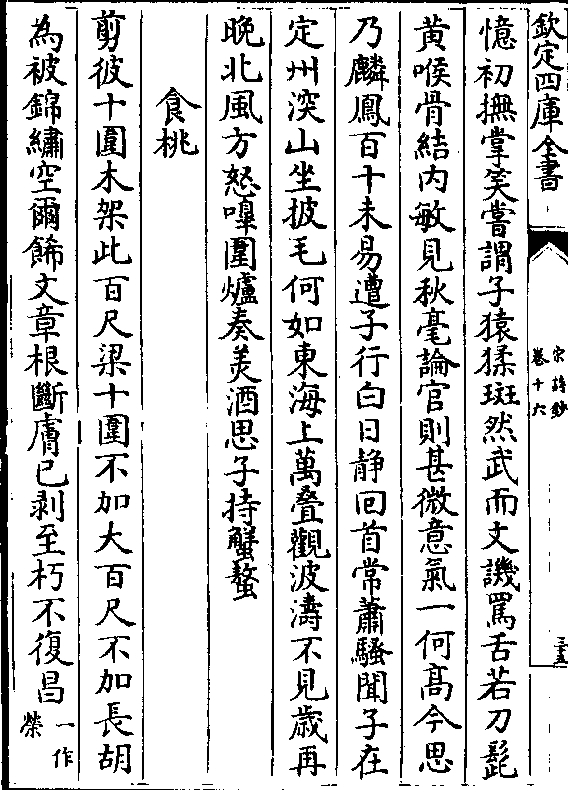 欽定四庫全書
宋詩鈔
卷十六
三五
憶初撫掌笑嘗謂子猿猱斑然武而文譏罵舌若刀髭
黄喉骨結内敏見秋毫論官則甚微意氣一何髙今思
乃麟鳳百十未易遭子行白日静回首常蕭騷聞子在
定州深山坐披毛何如東海上萬疊觀波濤不見歳再
晚北風方怒嘷圍爐奏羙酒思子持蟹螯
食桃
剪彼十圍木架此百尺梁十圍不加大百尺不加長胡
為被錦繡空爾餙文章根斷膚已剥至朽不復昌
一作
榮